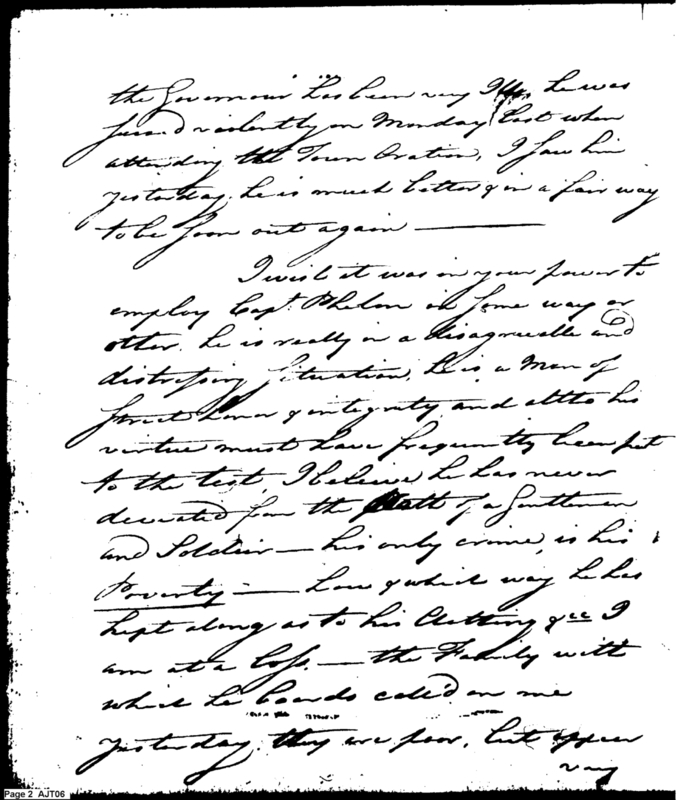 the Governour has been very Ill, he was
seized violently on Monday last when
attending the Town Oration, I saw him
yesterday, he is much better & in a fair way
to be soon out again —
I wish it was in your power to
employ Capt. Phelon in some way or
other. he is really in a disagreeable and
distressing situation, he is a Man of
strict honor & integrity and altho his
virtue must have frequently been put
to the test, I believe he has never
deviated from the path of a Gentleman
and Soldier — his only crime, is his
Poverty — how & which way he has
kept along as to his Clothing &cc I
am at a loss. — the Family with
which he boards called on me
yesterday, they are poor, but appear
very
Page 2 AJT06